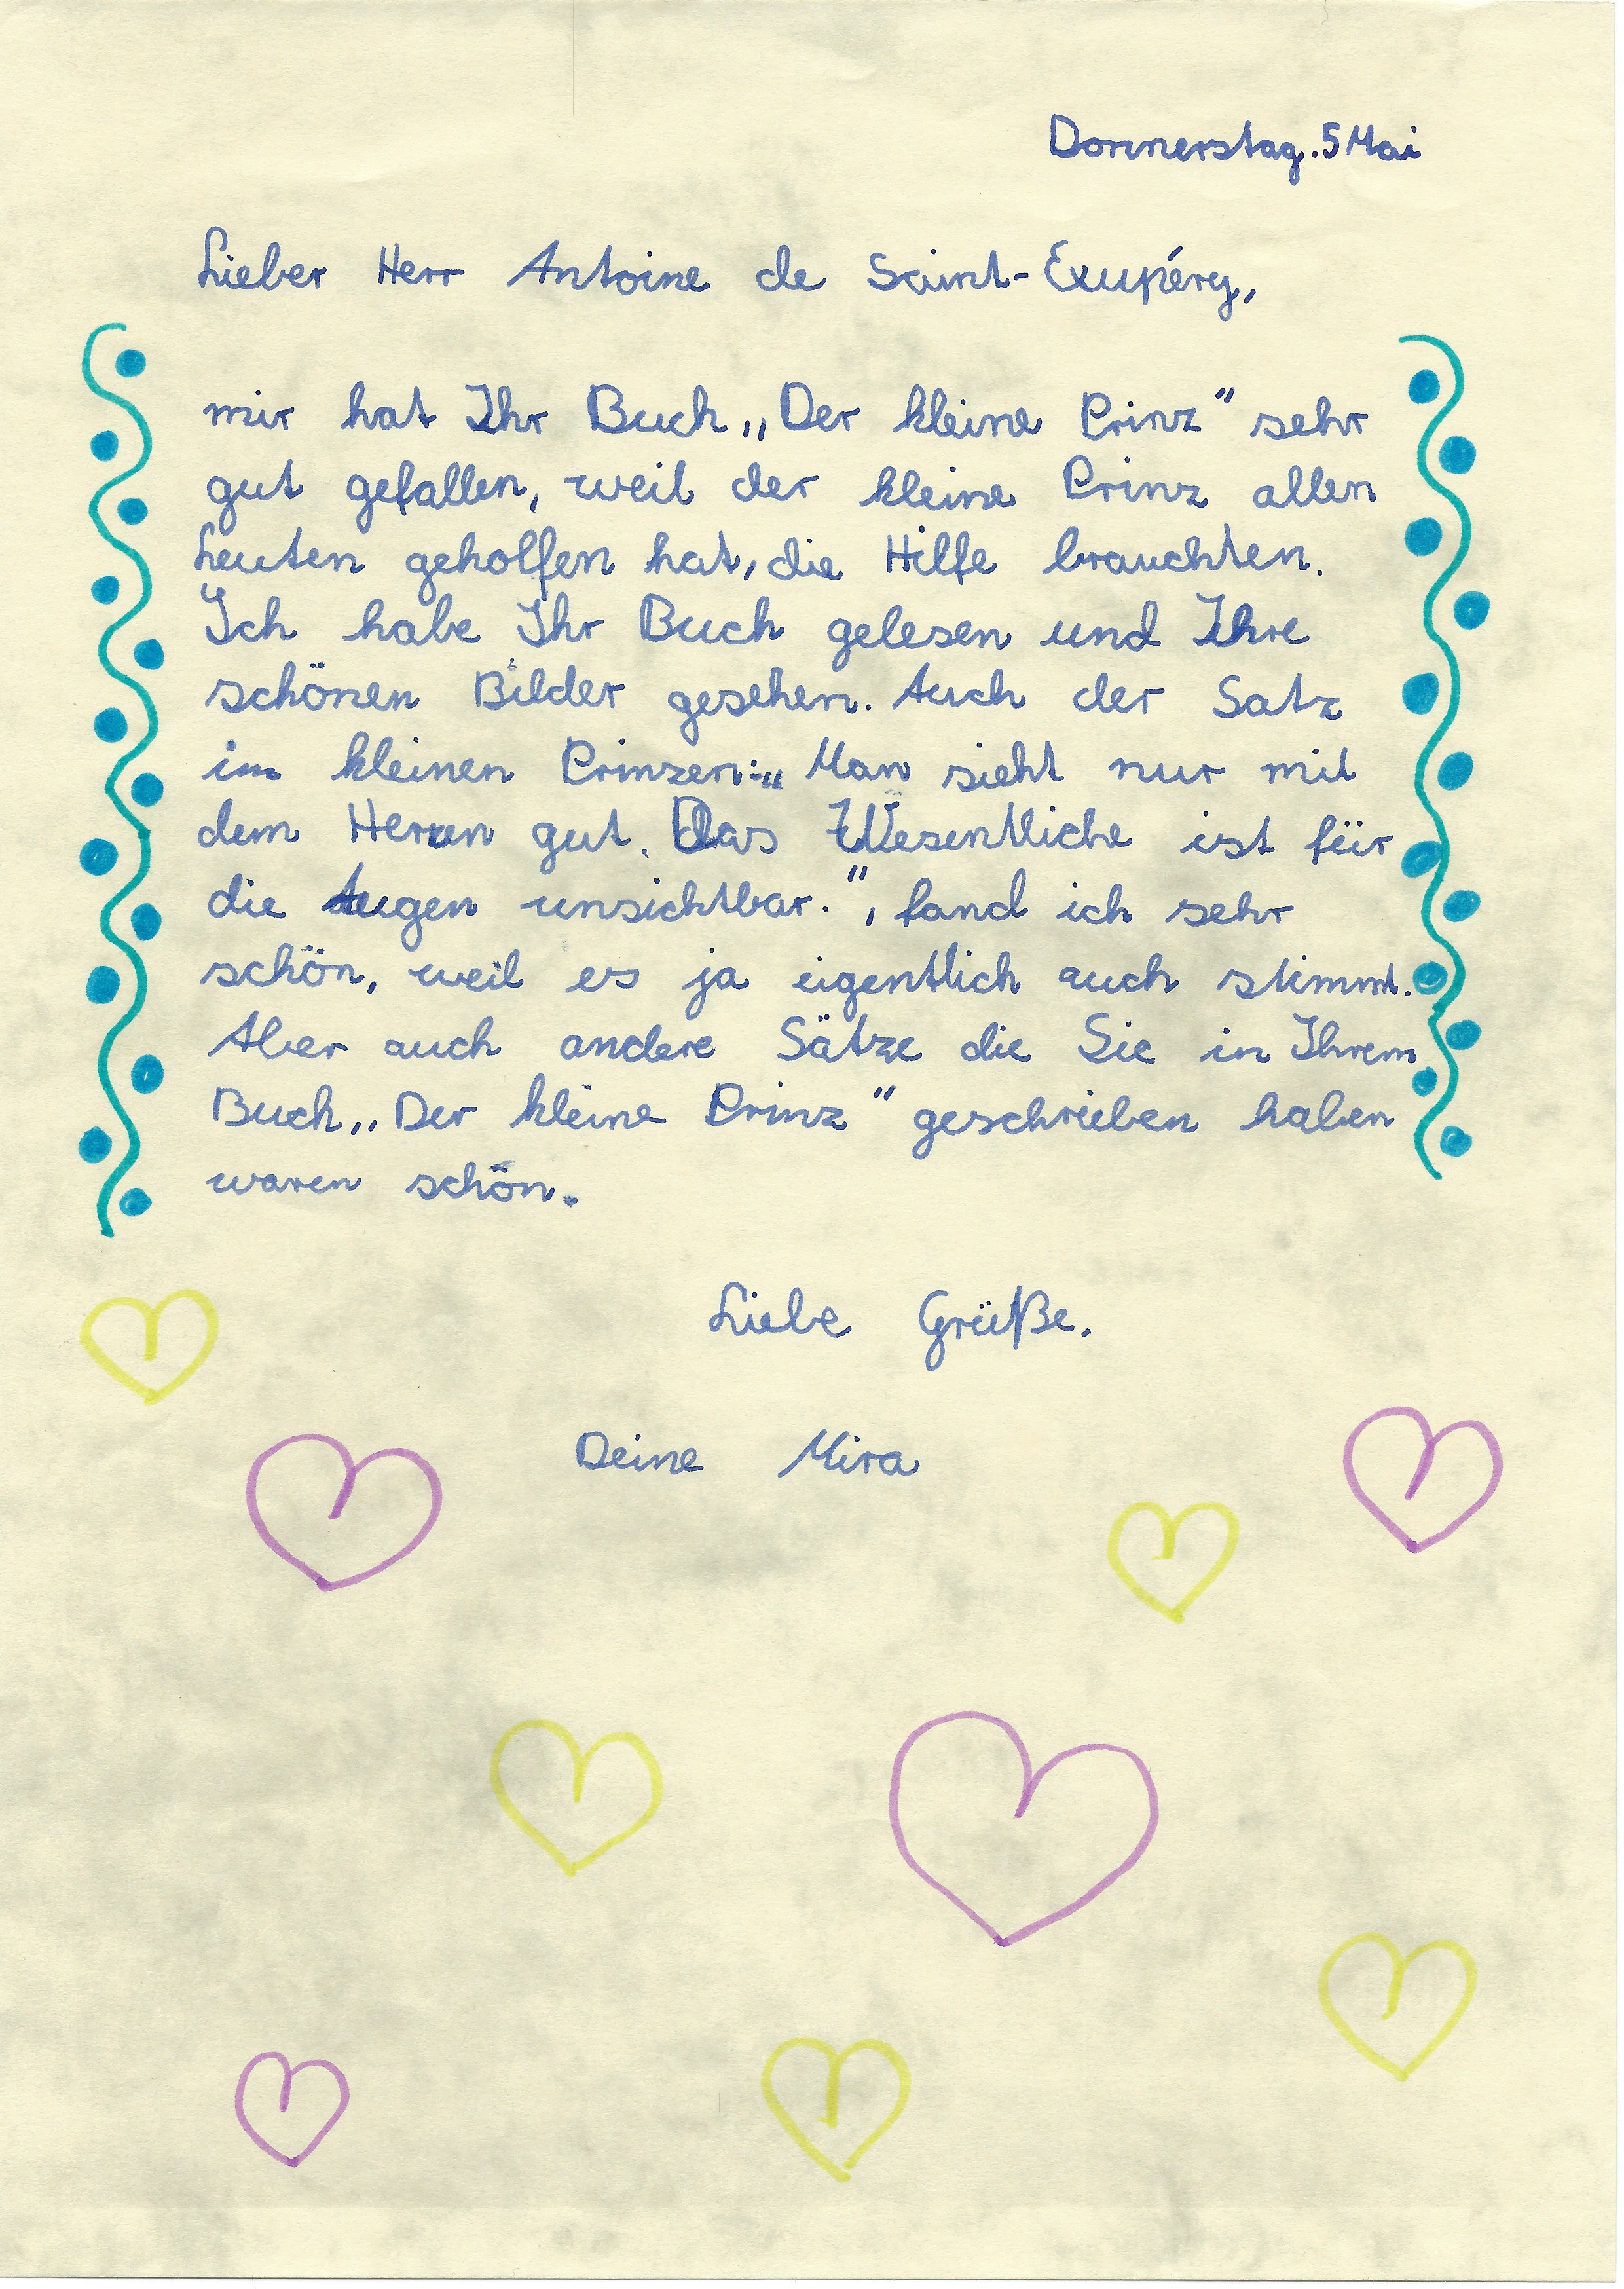 Donnerstag. 5 Mai
Lieber Herr Antoine de Saint-Exupéry,
mir hat Ihr Buch „Der kleine Prinz" sehr
gut gefallen, weil der kleine Prinz allen
Leuten geholfen hat, die Hilfe brauchten.
Ich habe Ihr Buch gelesen und Ihre
schönen Bilder gesehen. Auch der Satz
im kleinen Prinzen: „Man sieht nur mit
dem Herzen gut. Das Wesentliche ist für
die Augen unsichtbar.", fand ich sehr
schön, weil es ja eigentlich auch stimmt.
Aber auch andere Sätze die Sie in Ihrem
Buch „Der kleine Prinz" geschrieben haben
waren schön.
Liebe Grüße.
Deine Mira